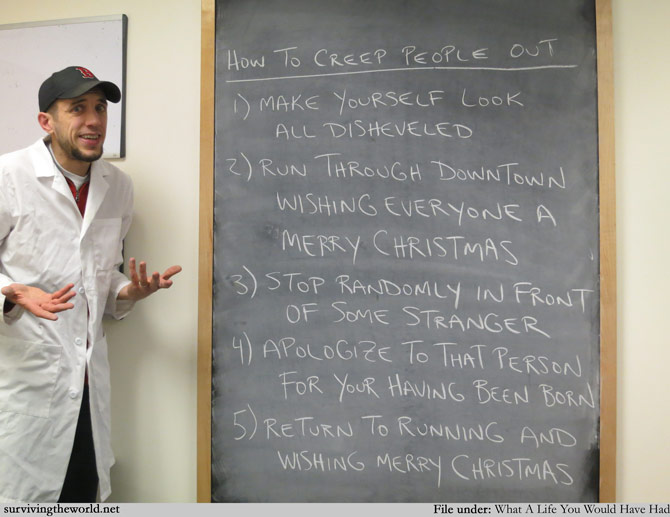 How To Creep People Out
1) Make Yourself Look
All Disheveled
2) Run Through Downtown
Wishing Everyone A
Merry Christmas
3) Stop Randomly In Front
Of Some Stranger
4) Apologize To That Person
For Your Having Been Born
5) Return To Running And
Wishing Merry Christmas
survivingtheworld.net
File under: What A Life You Would Have Had